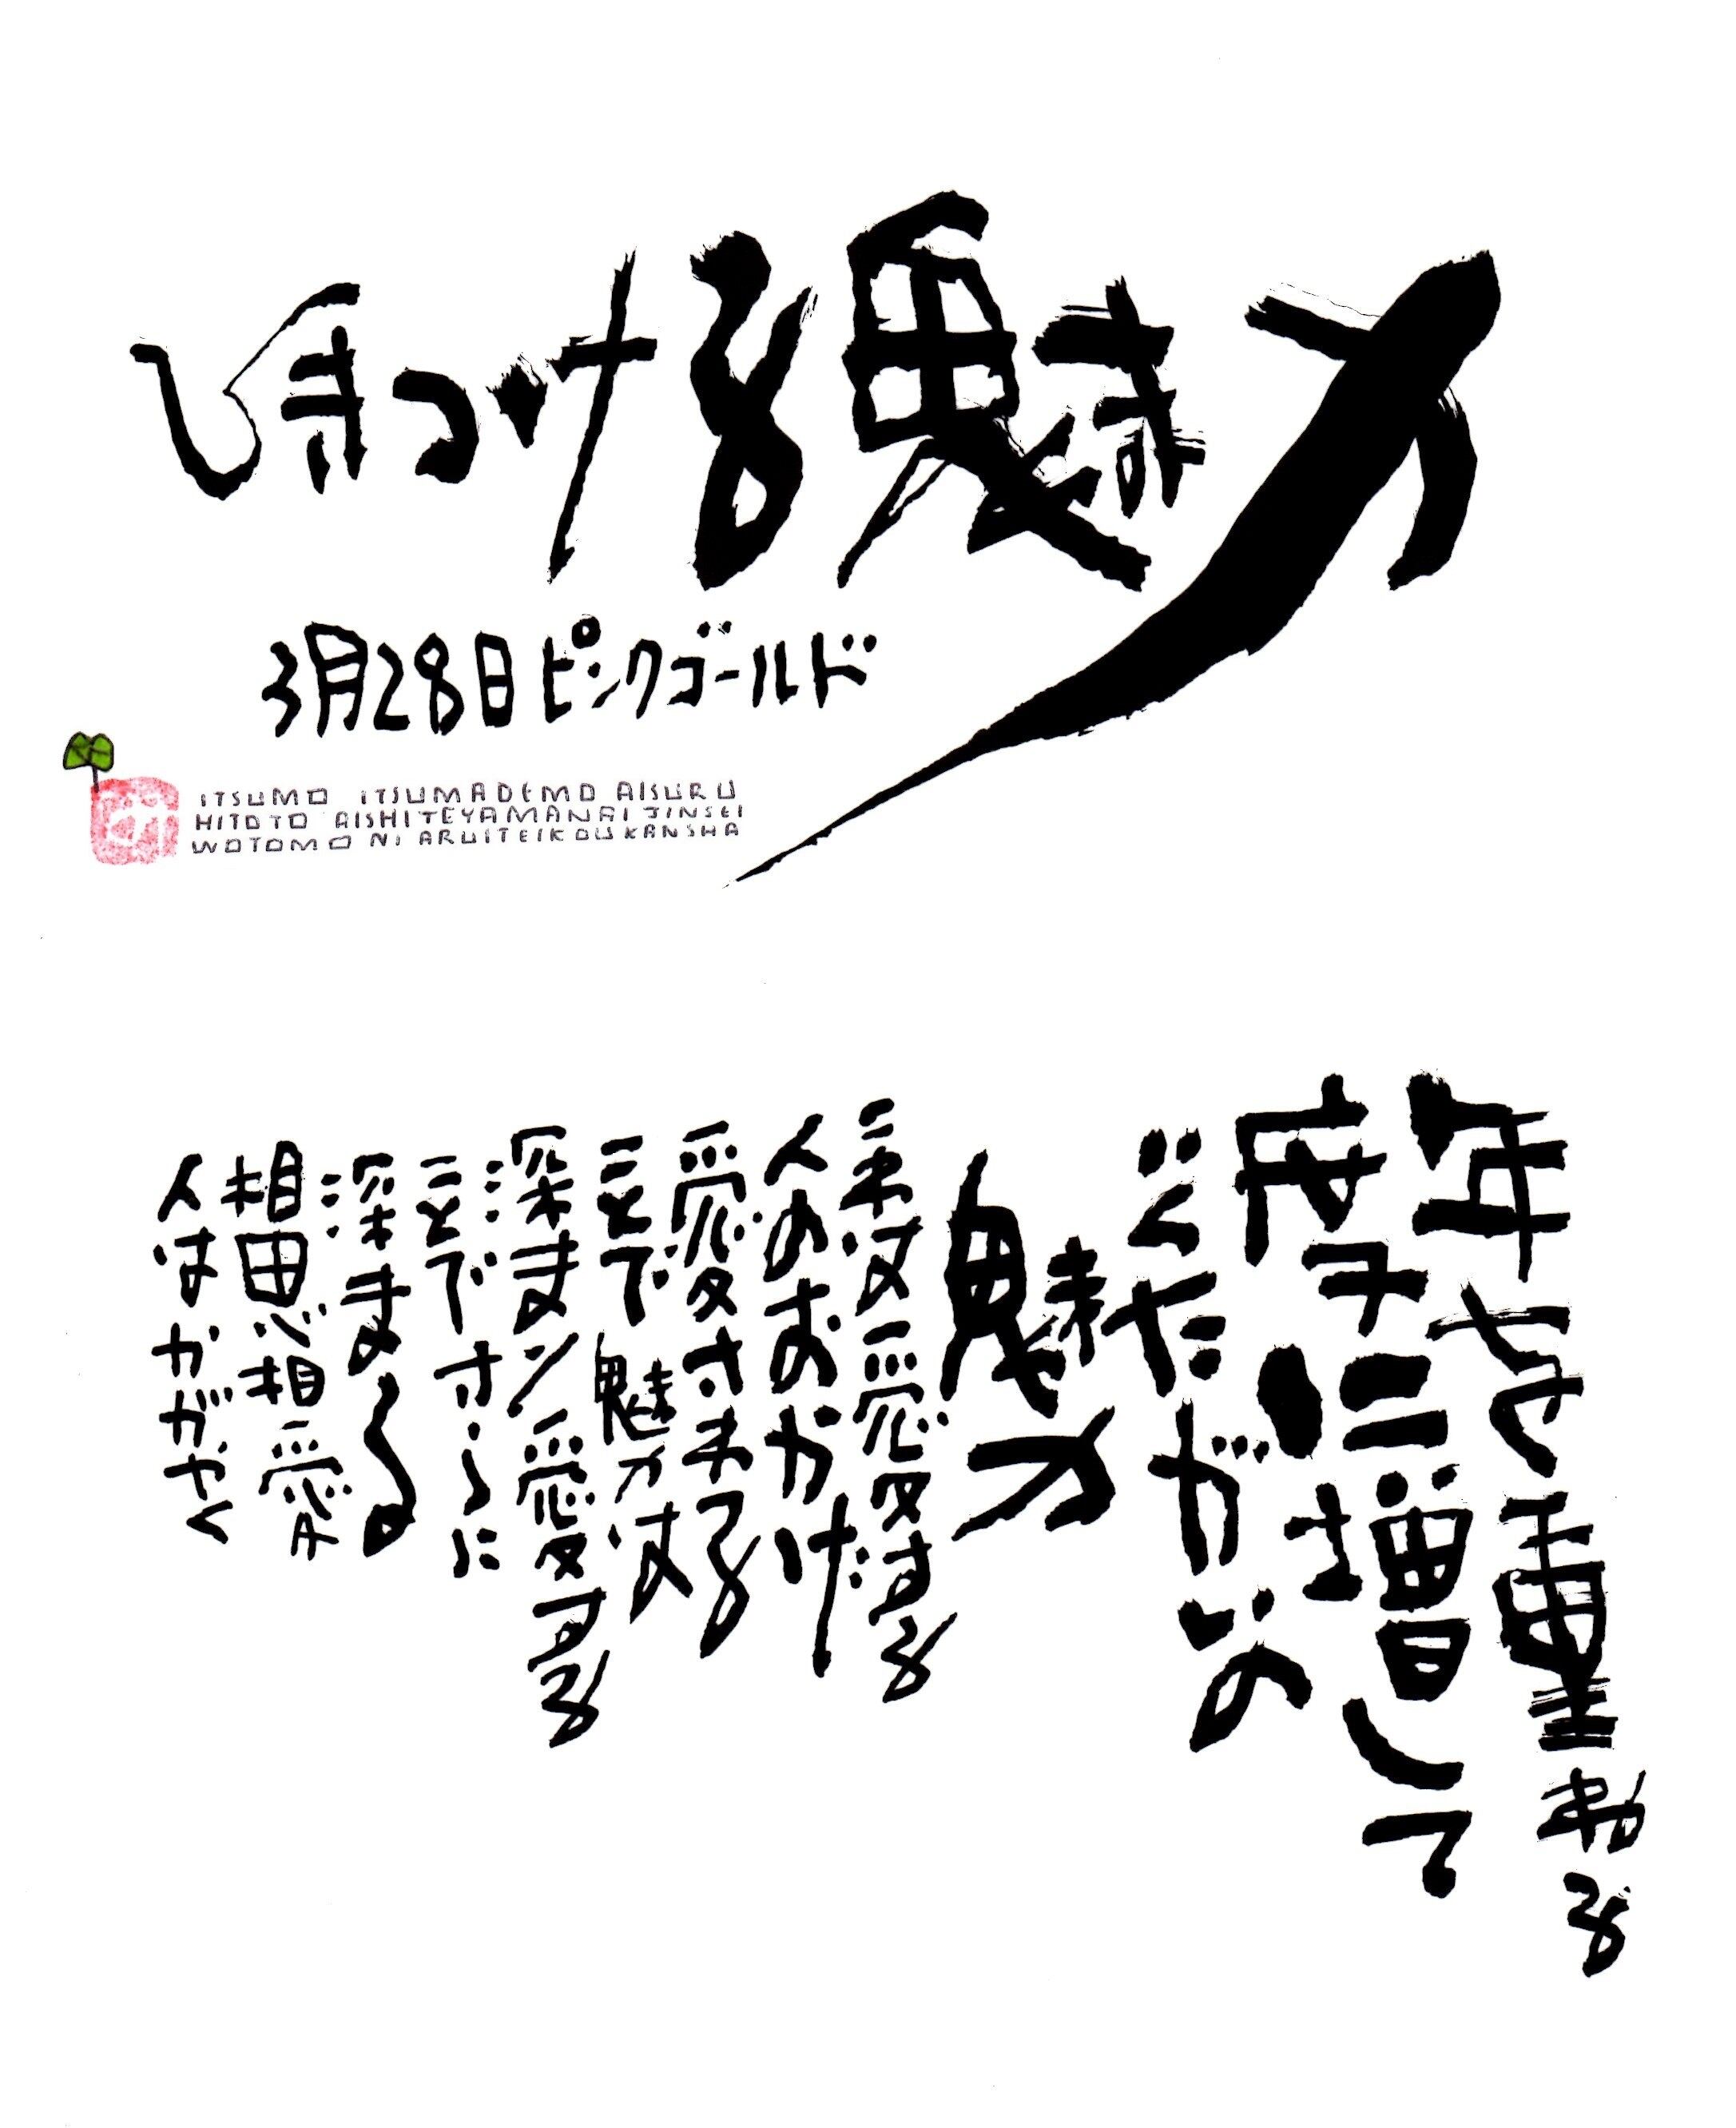 ひきつける魅力
3月28日ピンクゴールド
ITSUMO ITSUMADEMO AISURU
HITOTO AISHITEYAMANAI JINSEI
WOTOMO NI ARUITEIKOU KANSHA
年を重ねる
増して
魅力
愛する
人のおかげ
愛される
ことで 魅力は
深まり 愛する
ことで さらに
深まる
相思相愛
人はかがやく